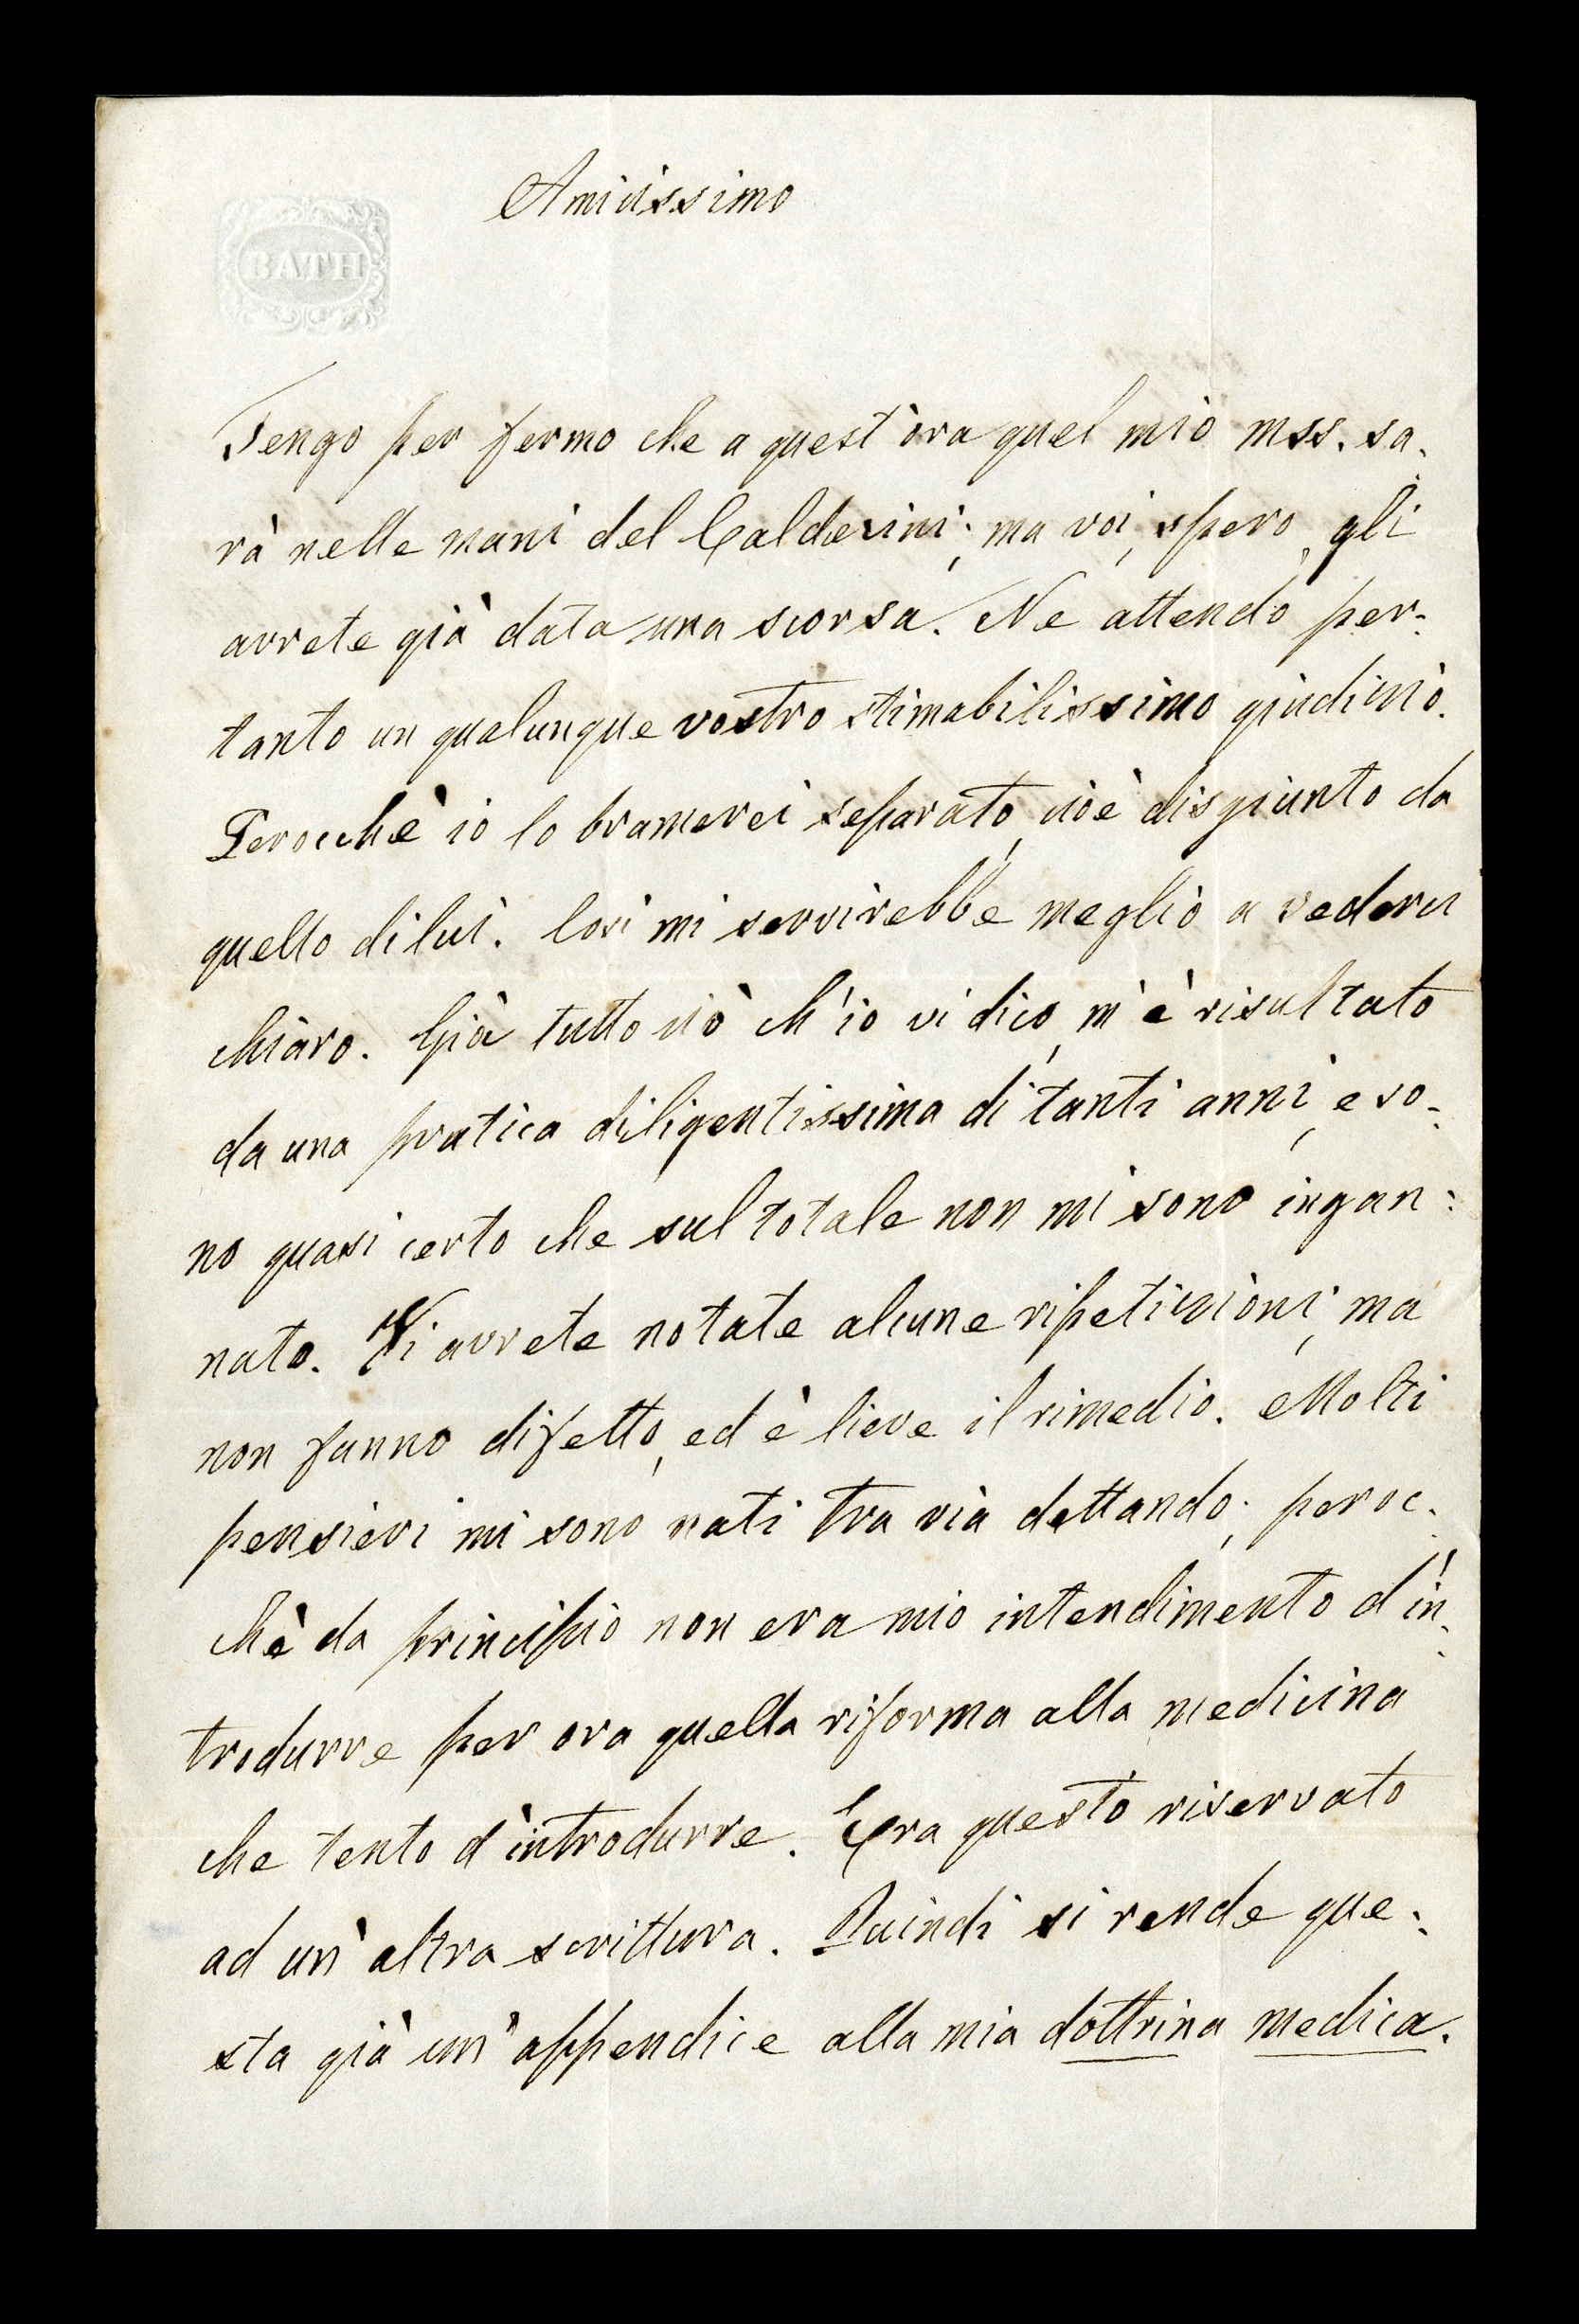 BATH
Amicissimo
Tengo per fermo che a quest'ora quel mio mss. sa-
rà nelle mani del Calderini; ma voi, spero, gli
avrete già data una scorsa. Ne attendo per-
tanto un qualunque vostro stimabilissimo giudicio.
Perocchè io lo bramerei separato, cioè disgiunto da
quello di lui. Così mi servirebbe meglio a vederci
chiaro. Già tutto ciò ch'io vi dico, m'è risultato
da una pratica diligentissima di tanti anni, e so-
no quasi certo che sul totale non mi sono ingan-
nato. Vi avrete notate alcune ripetizioni, ma
non fanno difetto, ed è lieve il rimedio. Molti
pensieri mi sono nati tra via dettando; peroc-
chè da principio non era mio intendimento d'in-
trodurre per ora quella riforma alla medicina
che tento d'introdurre. Era questo riservato
ad un'altra scrittura. Quindi si rende que-
sta già un'appendice alla mia dottrina medica.